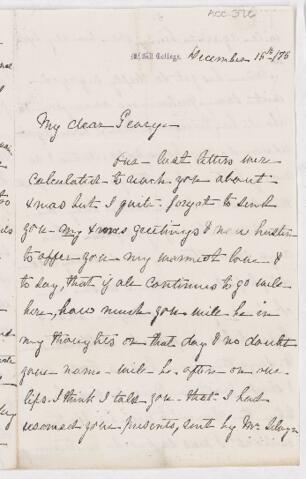 ACC 526
McGill College.
December 15th/75
My dear George -
Our last letters were
calculated to reach you about
Xmas but I quite forgot to send
you my Xmas greetings & now hasten
to offer you my warmest love &
to say, that if all continues to go well
here, how much you will be in
my thoughts on that day & no doubt
your name will be often on our
lips. I think I told you that I had
received your presents, sent by Mr Selwyn